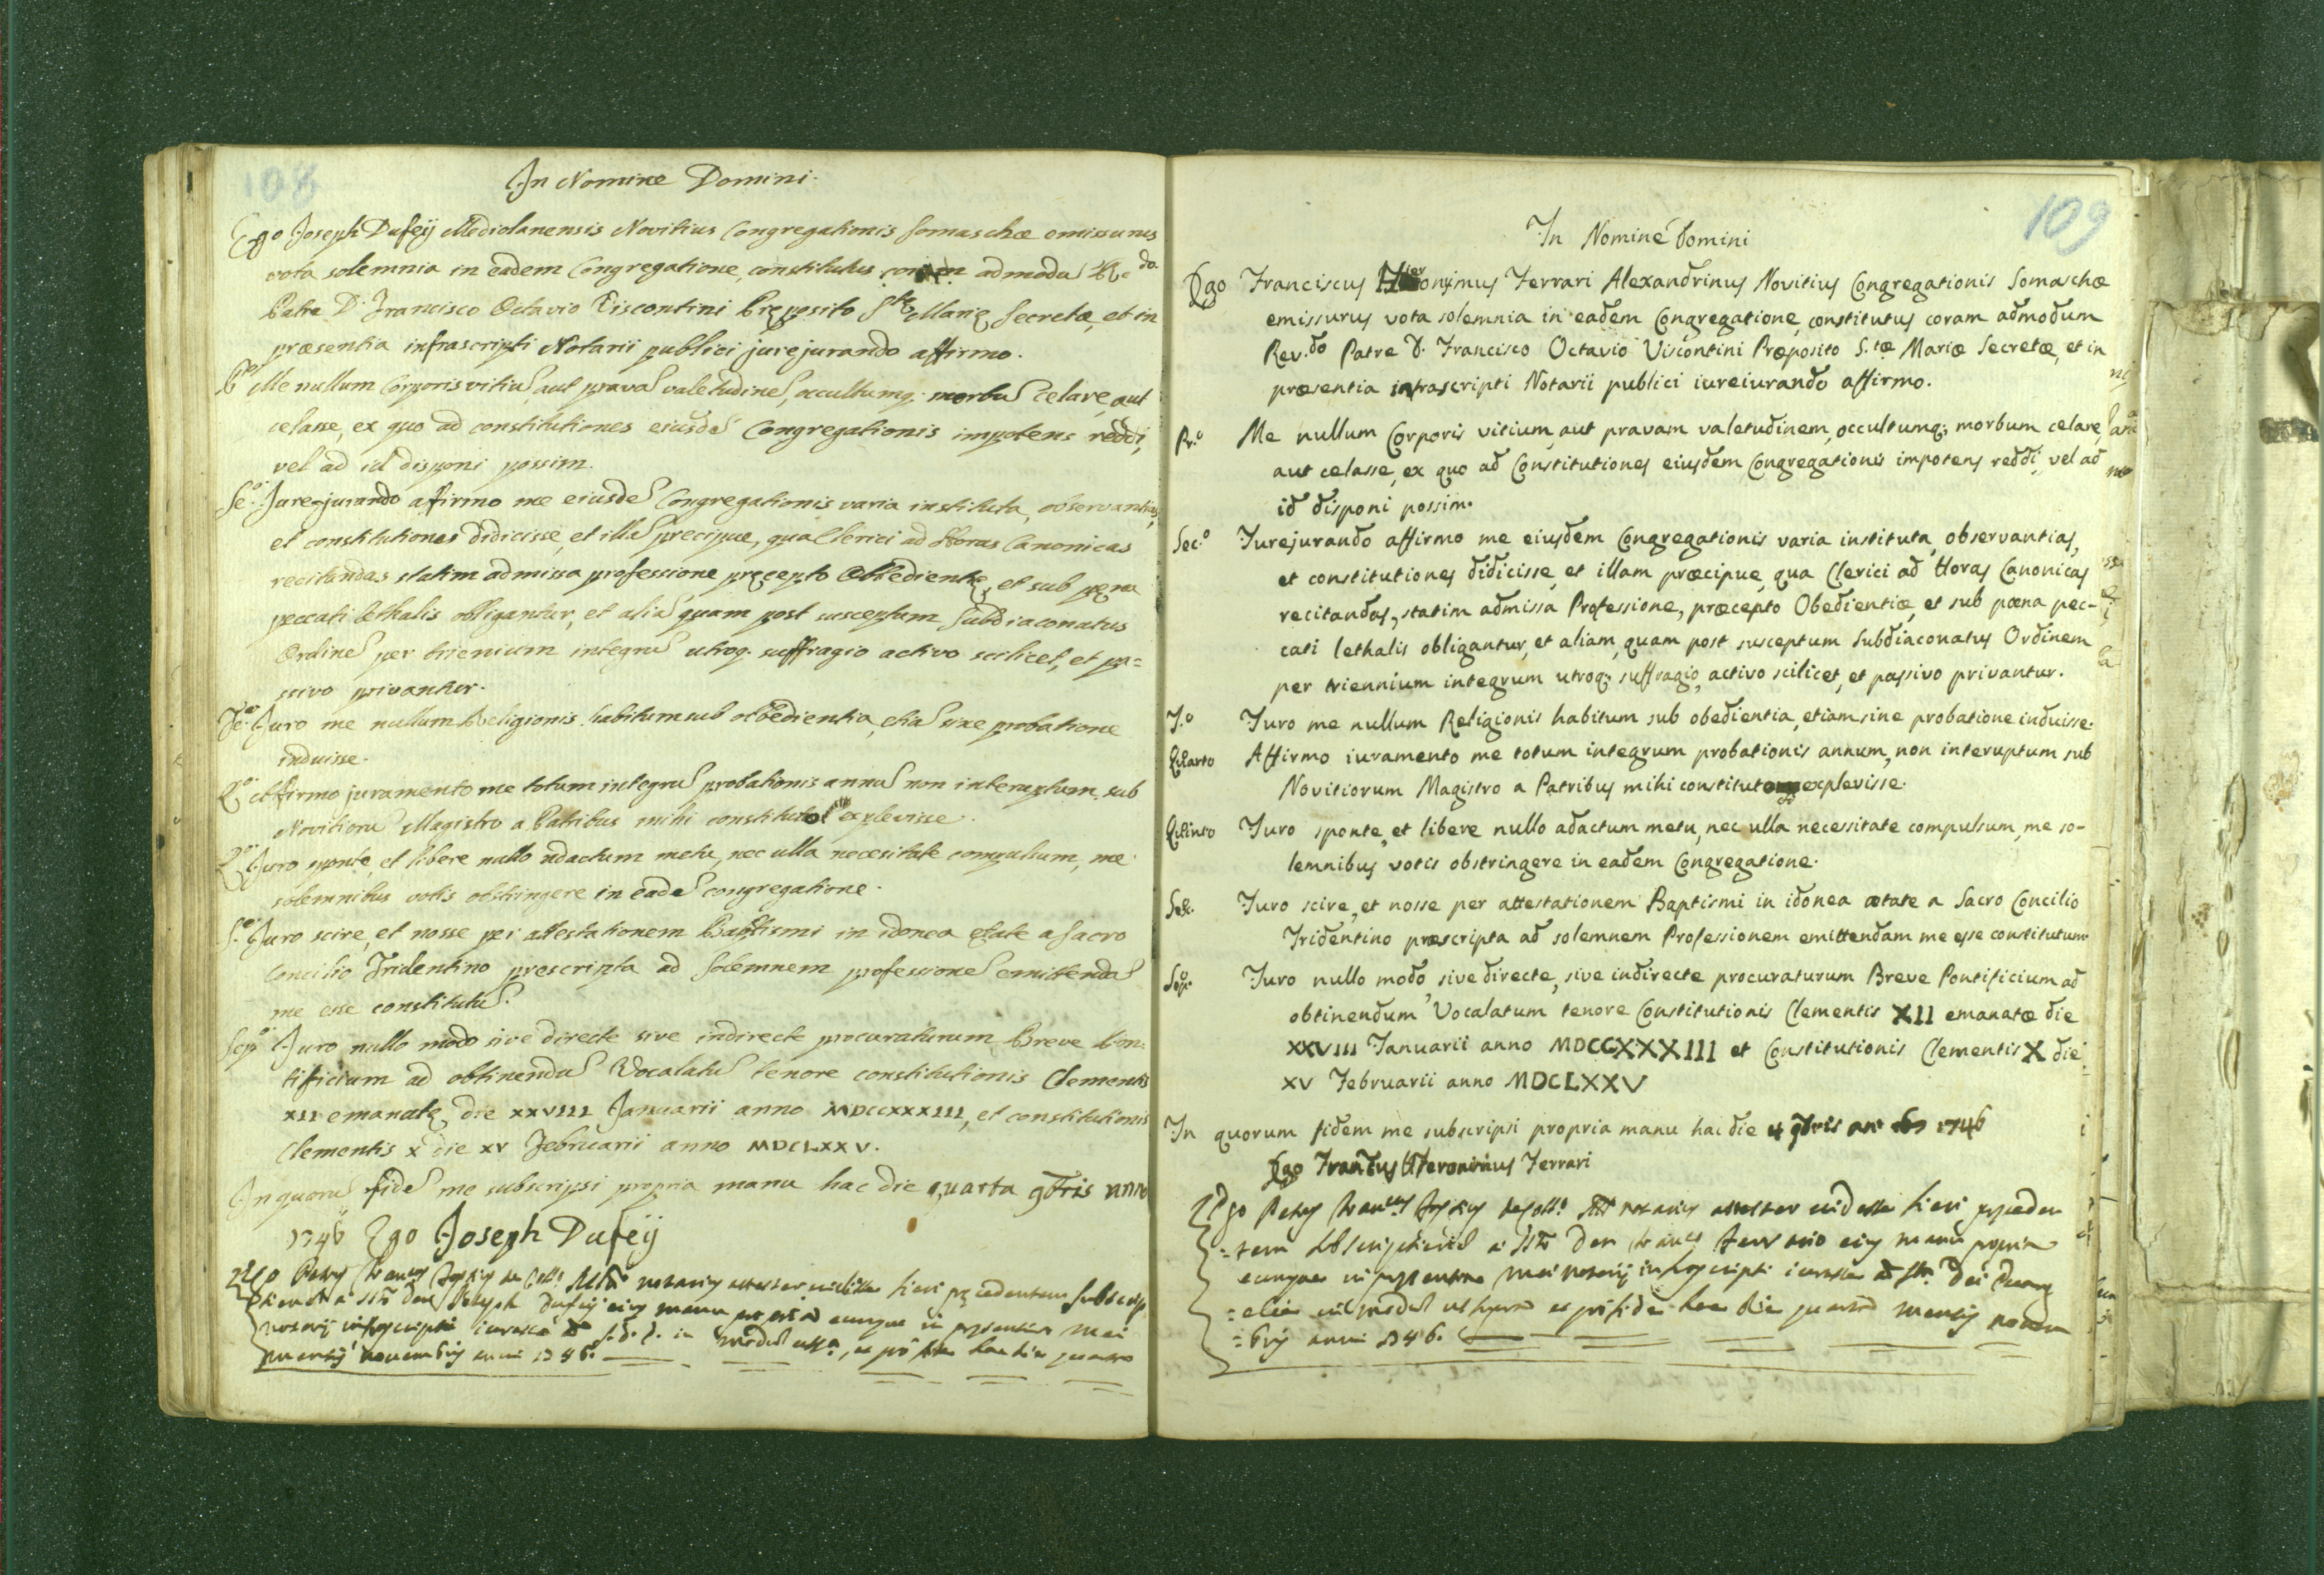 108
In Nomine Domini.
Ego Joseph Dufeÿ Mediolanensis Novitius Congregationis Somaschæ emissurus
vota solemnia in eadem Congregatione, constitutus admodũ Re.do
Patre D. Francisco Octavio Viscontini Pręposito S.tę Marię Secretæ, et in
præsentia infrascripti Notarii publici jurejurando affirmo.
P.o Me nullum Corporis vitiũ, aut pravã valetudinẽ, occultumq; morbũ celare, aut
celasse, ex quo ad constitutiones eiusdẽ Congregationis impotens reddi,
vel ad id disponi possim.
Se.o Jurejurando afirmo me eiusdẽ Congregationis varia instituta, observantias,
et constitutiones didicisse, et illã precipue, qua Clerici ad Horas Canonicas
recitandas statim admissa professione pręcepto Obbedientię, et sub pęna
peccati lethalis obligantur, et aliã quam post susceptum Subdiaconatus
Ordinẽ per trienium integrũ utroq. suffragio activo scilicet, et pa=
ssivo privantur.
Te.o Juro me nullum Religionis habitum sub obbedientia, etiã sine probatione
induisse.
Q.o Affirmo juramento me totum integrũ probationis annũ non interuptum sub
Novitiorũ Magistro a Patribus mihi constituto explevisse.
Q.o Juro sponte, et libere nullo adactum metu, nec ulla necesitate compulsum, me
solemnibus votis obstringere in eadẽ congregatione.
S.o Juro scire, et nosse per attestationem Baptismi in idonea ętate a Sacro
Concilio Tridentino prescripta ad Solemnem professionẽ emittendã
me esse constitutũ.
Sep.o Juro nullo modo sive directe sive indirecte procuraturum Breve Pon=
tificium ad obtinendũ Vocalatũ tenore constitutionis Clementis
XII emanatę die XXVIII Januarii anno MDCCXXXIII, et constitutionis
Clementis X die XV Februarii anno MDCLXXV.
In quorũ fidẽ me subscripsi propria manu hac die quarta 9bris anno
1746 Ego Joseph Dufeÿ
notarius attestor vidisse fieri pręcedentem subscrip
Joseph Dufeij eius manu propria eumque in presentia mei
notarij infrascripti
mensis novembris anni 1746.
109
In Nomine Domini
Ego Franciscus Hieronymus Ferrari Alexandrinus Novitius Congregationis Somaschæ
emissurus vota solemnia in eadem Congregatione, constitutus coram admodum
Rev.do Patre D. Francisco Octavio Viscontini Præposito S.tæ Mariæ Secretæ, et in
præsentia infrascripti Notarii publici iureiurando affirmo.
Pr.o Me nullum Corporis vitium, aut pravam valetudinem, occultumq; morbum celare,
aut celasse, ex quo ad Constitutiones eiusdem Congregationis impotens reddi, vel ad
id disponi possim.
Sec.o Jurejurando affirmo me eiusdem Congregationis varia instituta, observantias,
et constitutiones didicisse, et illam præcipue, qua Clerici ad Horas Canonicas
recitandas, statim admissa Professione, præcepto Obedientiæ, et sub pœna pec-
cati lethalis obligantur, et aliam, quam post susceptum Subdiaconatus Ordinem
per triennium integrum utroq; suffragio, activo scilicet, et passivo privantur.
T.o Juro me nullum Religionis habitum sub obedientia, etiam sine probatione induisse.
Quarto Affirmo iuramento me totum integrum probationis annum, non interuptum sub
Novitiorum Magistro a Patribus mihi constituto explevisse.
Quinto Juro sponte, et libere nullo adactum metu, nec ulla necessitate compulsum, me so-
lemnibus votis obstringere in eadem Congregatione.
Sex. Juro scire, et nosse per attestationem Baptismi in idonea ætate a Sacro Concilio
Tridentino præscripta ad solemnem Professionem emittendam me esse constitutum.
Sep.o Juro nullo modo sive directe, sive indirecte procuraturum Breve Pontificium ad
obtinendum Vocalatum tenore Constitutionis Clementis XII emanatæ die
XXVIII Januarii anno MDCCXXXIII et Constitutionis Clementis X die
XV Februarii anno MDCLXXV
In quorum fidem me subscripsi propria manu hac die 4 9bris 1746
Ego Hieronimus Ferrari
notarius attestor vidisse fieri pręceden
=tem eius manu propria
eumque in presentia mei notarij infrascripti
hac die quarta mensis novem
=bris anni 1746.